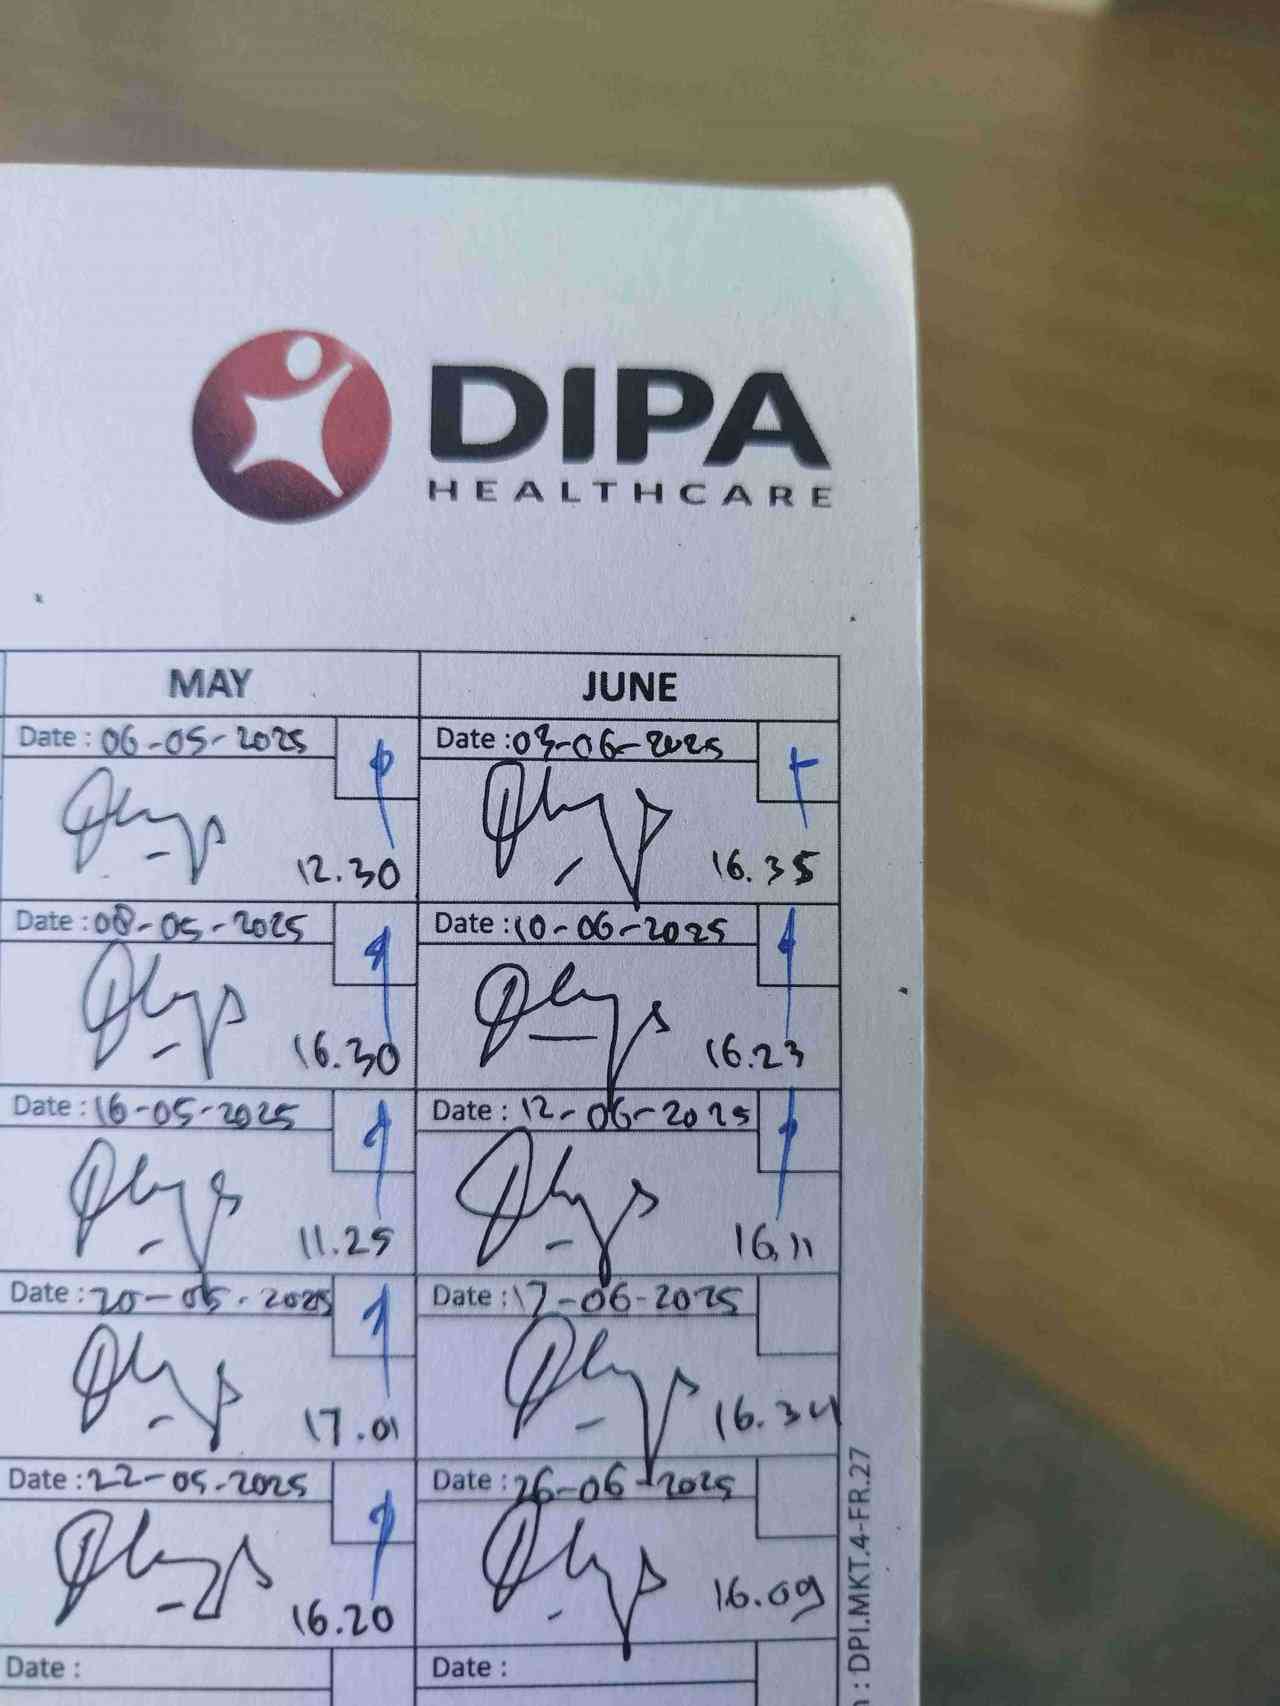 DIPA
HEALTHCARE
MAY JUNE
Date : 06-05-2025 Date : 03-06-2025
12.30 16.35
Date : 08-05-2025 Date : 10-06-2025
16.30 16.23
Date : 16-05-2025 Date : 12-06-2025
11.25 16.11
Date : 20-05-2025 Date : 17-06-2025
17.01 16.34
Date : 22-05-2025 Date : 26-06-2025
16.20 16.09
Date : Date :
: DPI.MKT.4-FR.27